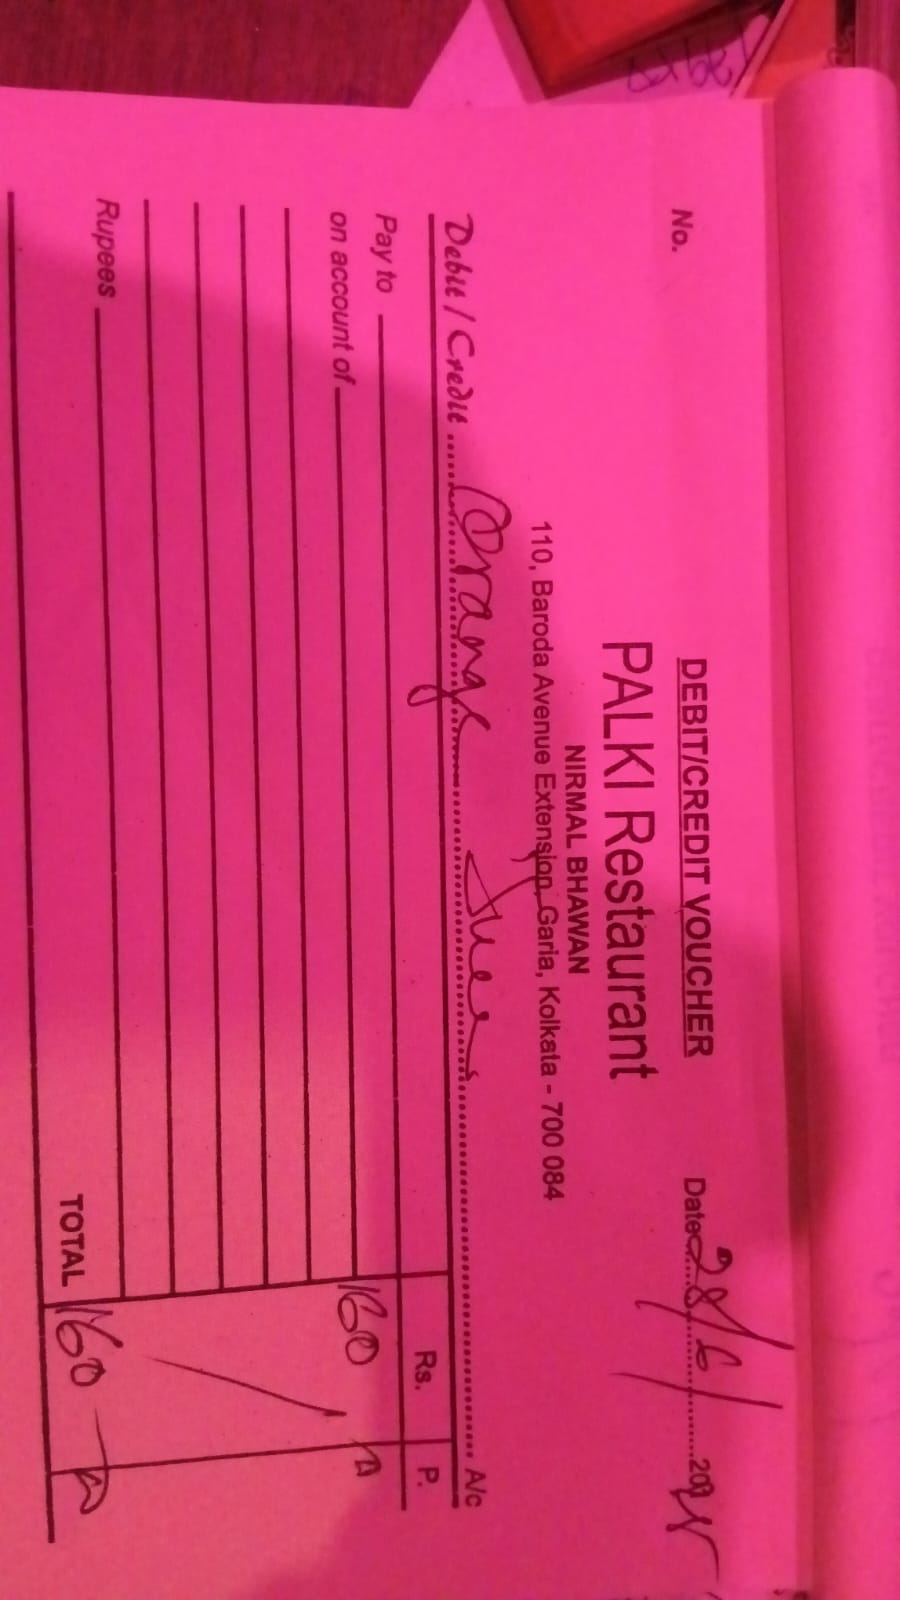 DEBIT/CREDIT VOUCHER
No.
Date 28/6/
PALKI Restaurant
NIRMAL BHAWAN
110, Baroda Avenue Extension, Garia, Kolkata - 700 084
Debit / Credit Orange Juce A/c
Rs. P.
Pay to
on account of 160
Rupees
TOTAL 160